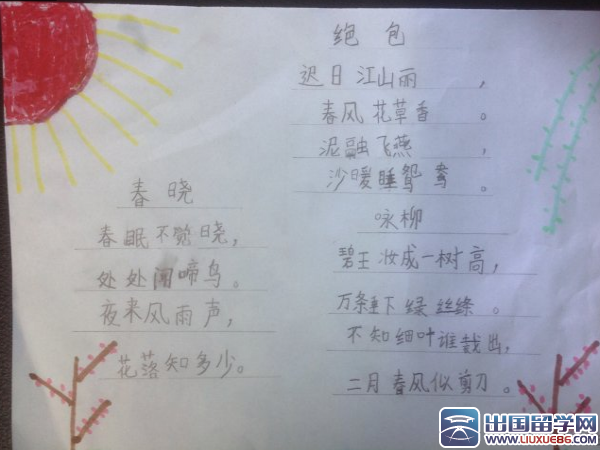 绝包
迟日江山丽,
春风花草香。
泥融飞燕,
沙暖睡鸳鸯。
春晓
春眠不觉晓,
处处闻啼鸟。
夜来风雨声,
花落知多少。
咏柳
碧王妆成一树高,
万条垂下绿丝绦。
不知细叶谁裁出,
二月春风似剪刀。
出国留学网
WWW.LIUXUE86.COM